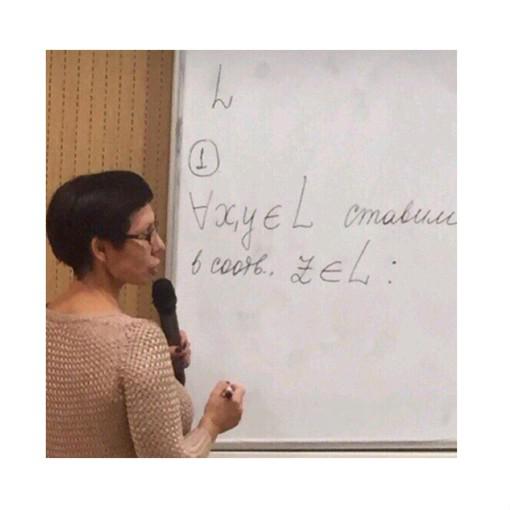 L
①
∀x,y ∈ L ставим
в соотв. z ∈ L :